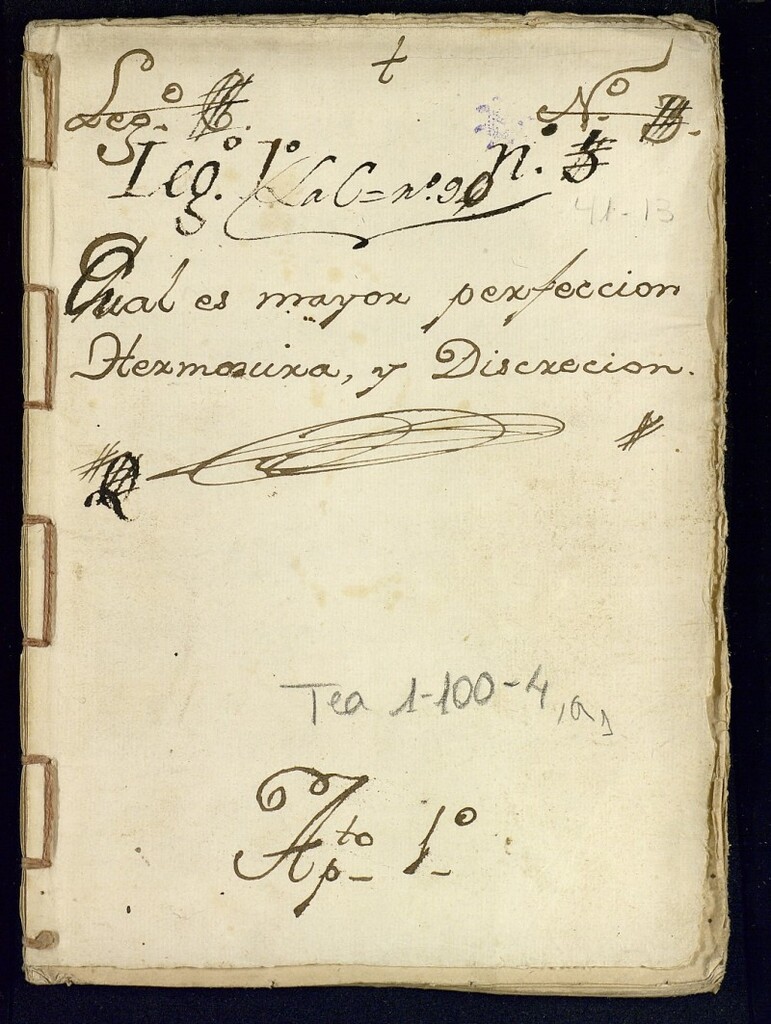 †
Leg.º Nº
Leg.º 1º n.º 5
La C=nº.90
41-13
Qual es mayor perfeccion
Hermosura, y Discrecion.
Tea 1-100-4, a,
Ap.to 1.º